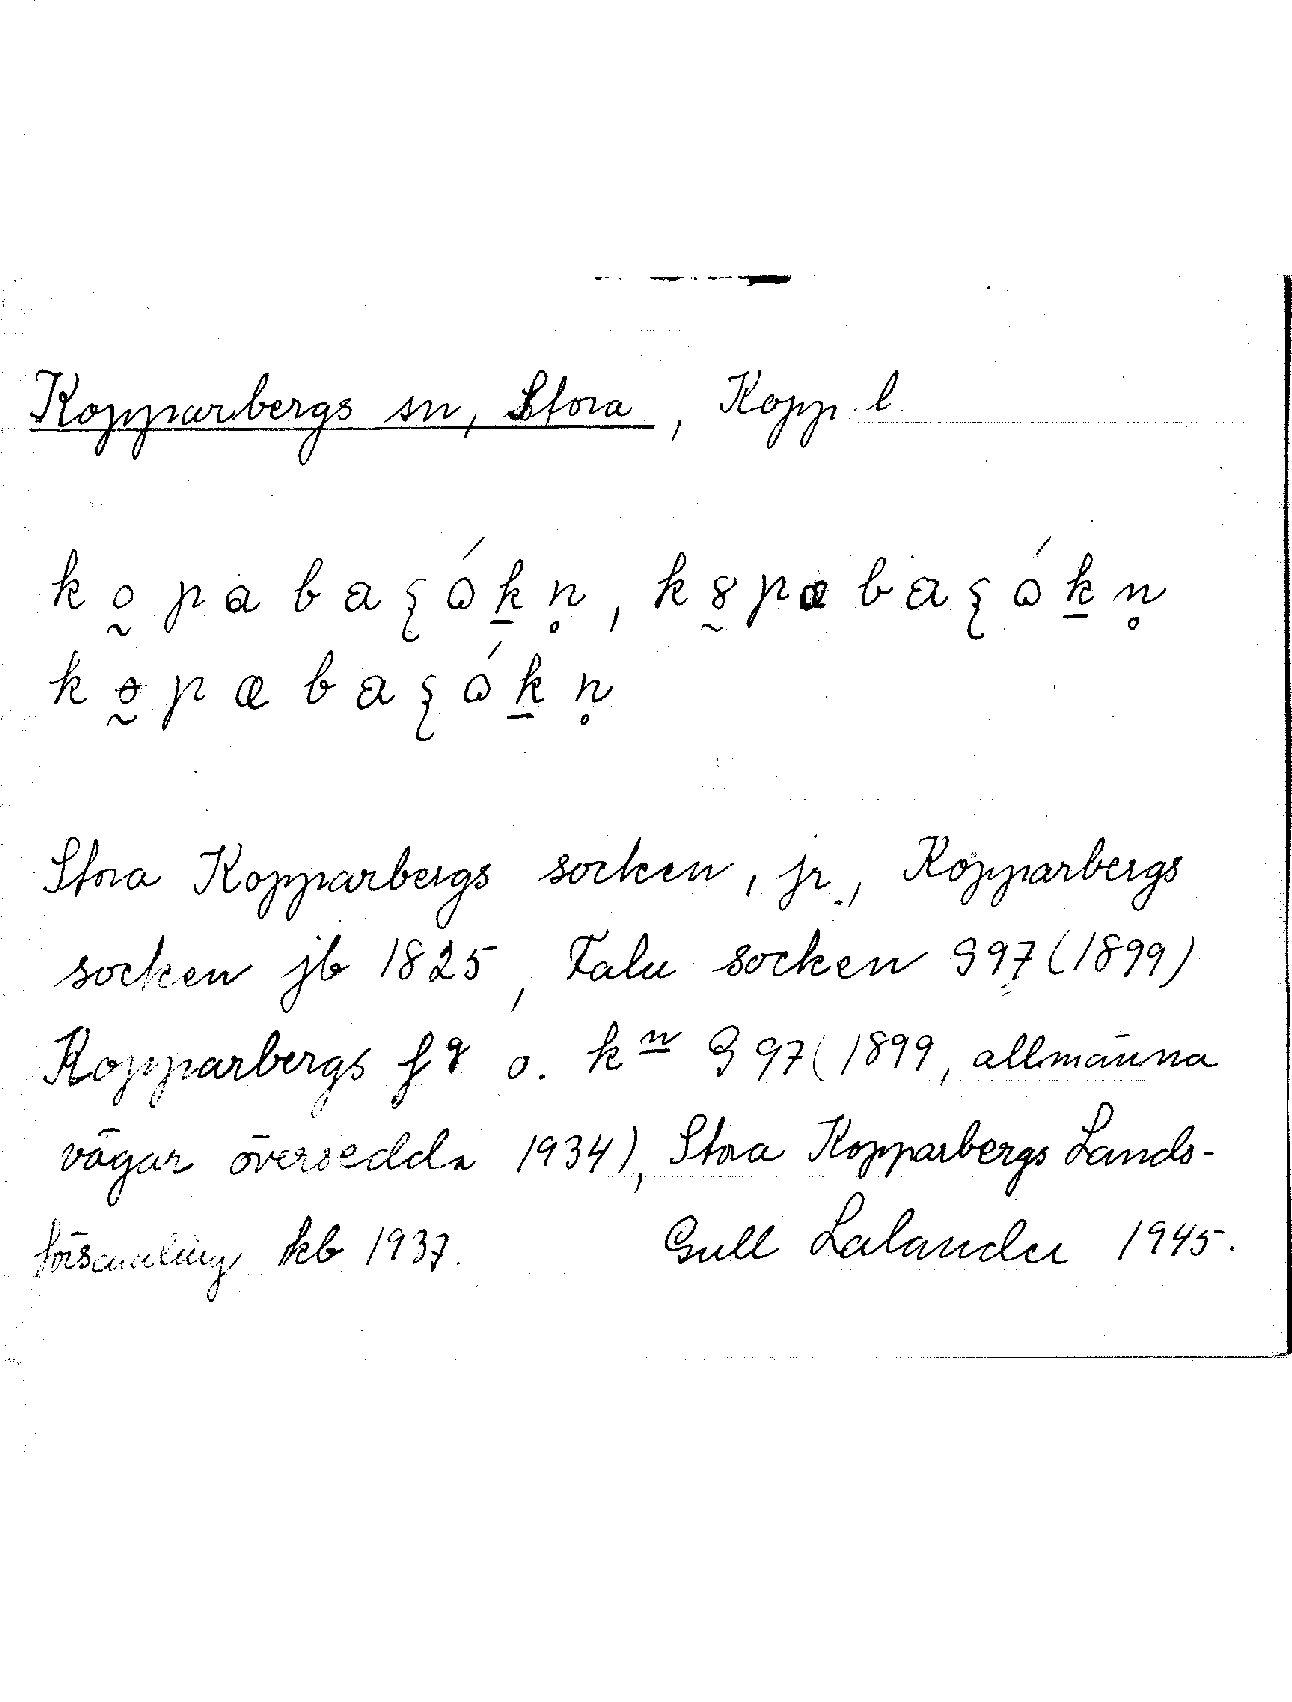 Kopparbergs sn, Stora, Kopp. l.
Stora Kopparbergs socken, jr., Kopparbergs
socken jb 1825, Falu socken G97 (1899)
Kopparbergs fg o. kn G97 (1899, allmänna
vägar översedda 1934), Stora Kopparbergs Lands-
församling kb 1937. Gull Lalander 1945.